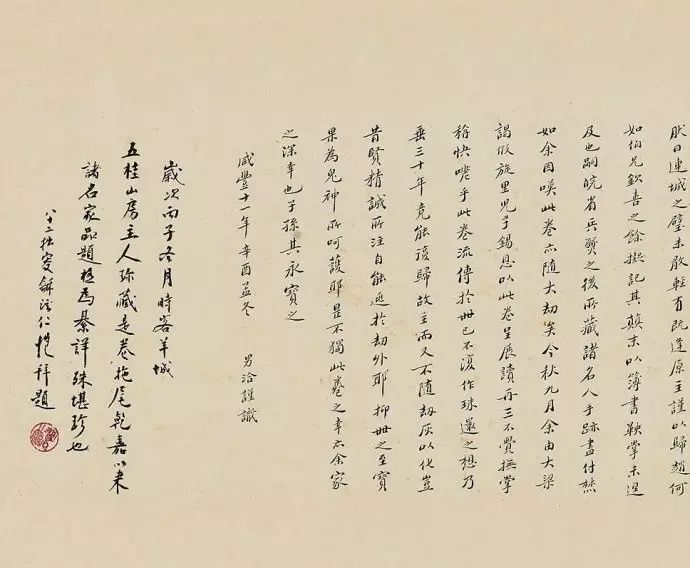 肰曰連城之璧未敢輕有既逢原主謹以歸趙何
如伯兄欽喜之餘擬記其顛末以簿書鞅掌未遑
及也嗣皖省兵燹之後所藏諸名人手跡盡付焚
如余因嘆此卷亦隨大劫矣今秋九月余由大梁
謁假旋里兒子錫恩以此卷呈展讀再三不覺撫掌
稱快嗟乎此卷流傳於世已不復作珠還之想乃
垂三十年竟能復歸故主而又不隨劫灰以化豈
昔賢精誠所注自能逃於劫外耶抑世之至寶
果為鬼神所呵護耶是不獨此卷之幸亦余家
之深幸也子孫其永寶之
咸豐十一年辛酉孟冬 男洽謹識
歲次丙子冬月時客羊城
五桂山房主人珍藏是卷拖尾乾嘉以來
諸名家品題極為綦詳殊堪珍也
八十二拙叟 仁愷拜題